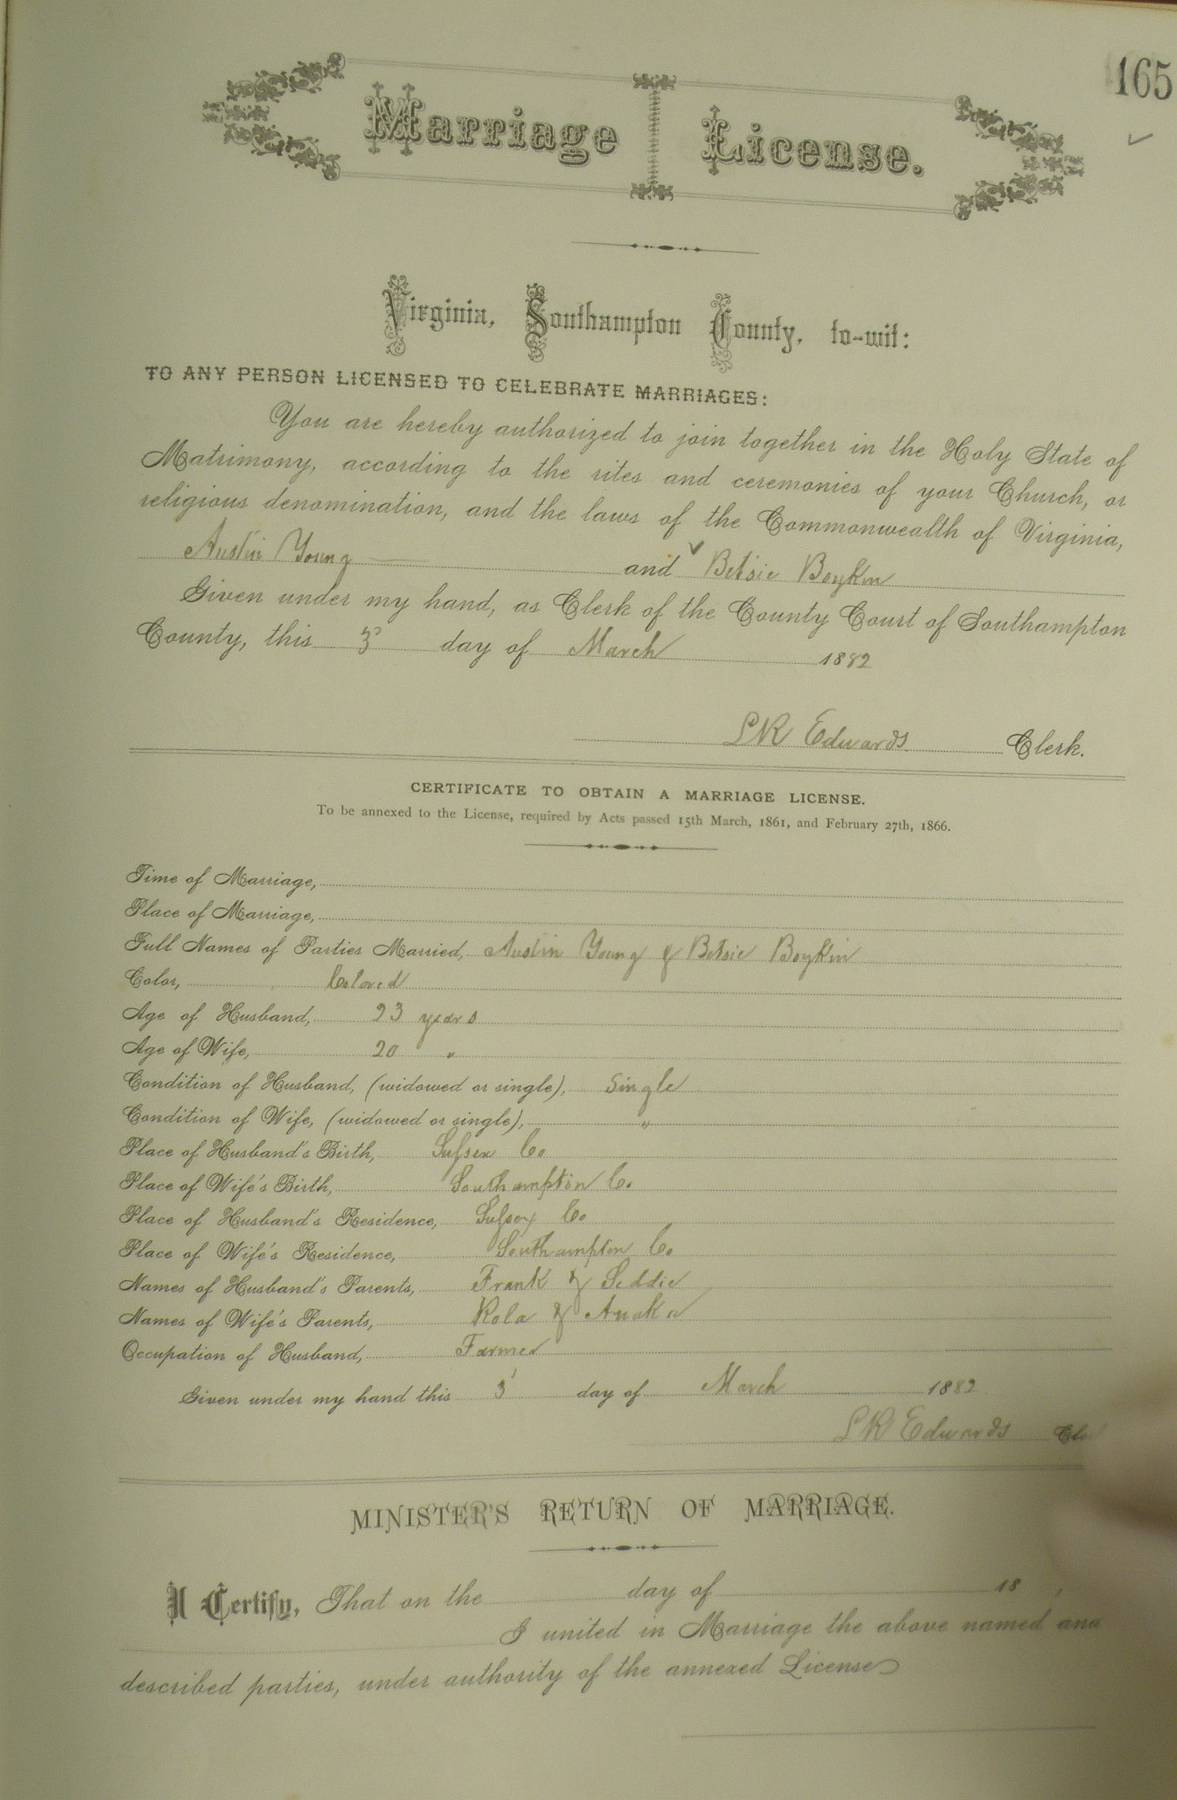 165
Marriage License.
Virginia, Southampton County, to-wit:
TO ANY PERSON LICENSED TO CELEBRATE MARRIAGES:
You are hereby authorized to join together in the Holy State of
Matrimony, according to the rites and ceremonies of your Church, or
religious denomination, and the laws of the Commonwealth of Virginia,
Austin Young and Betsie Boykin
Given under my hand, as Clerk of the County Court of Southampton
County, this 3 day of March 1882
LR Edwards Clerk.
CERTIFICATE TO OBTAIN A MARRIAGE LICENSE.
To be annexed to the License, required by Acts passed 15th March, 1861, and February 27th, 1866.
Time of Marriage,
Place of Marriage,
Full Names of Parties Married, Austin Young & Betsie Boykin
Color, Colored
Age of Husband, 23 years
Age of Wife, 20 "
Condition of Husband, (widowed or single), Single
Condition of Wife, (widowed or single), "
Place of Husband's Birth, Sussex Co
Place of Wife's Birth, Southampton Co.
Place of Husband's Residence, Sussex Co
Place of Wife's Residence, Southampton Co
Names of Husband's Parents, Frank & Seddie
Names of Wife's Parents, Kola &
Occupation of Husband, Farmer
Given under my hand this 3 day of March 1882
LR Edwards Cle
MINISTER'S RETURN OF MARRIAGE.
I Certify, That on the day of 18 ,
I united in Marriage the above named and
described parties, under authority of the annexed License